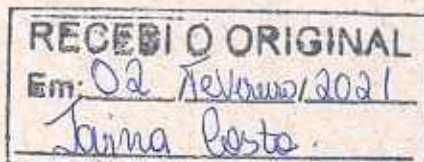 RECEBI O ORIGINAL
Em: 02 Fevereiro/2021
Jaina Costa.